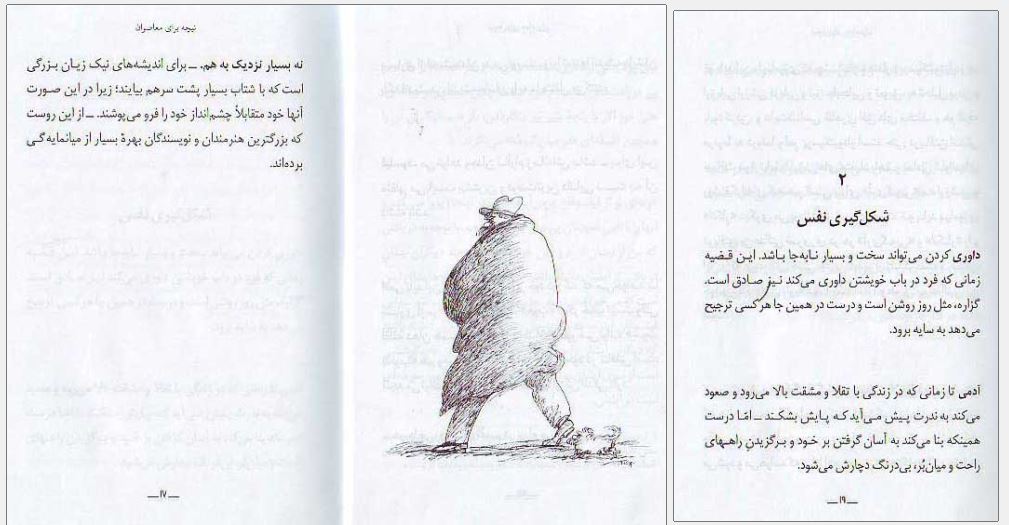 نیچه برای معاصران
نه بسیار نزدیک به هم. ــ برای اندیشه‌های نیک زیان بزرگی
است که با شتاب بسیار پشت سرهم بیایند؛ زیرا در این صورت
آنها خود متقابلاً چشم‌انداز خود را فرو می‌پوشند. ــ از این روست
که بزرگترین هنرمندان و نویسندگان بهرهٔ بسیار از میانمایه‌گی
برده‌اند.
ــ ۱۷ ــ
۲
شکل‌گیری نفس
داوری کردن می‌تواند سخت و بسیار نابه‌جا باشد. این قضیه
زمانی که فرد در باب خویشتن داوری می‌کند نیز صادق است.
گزاره، مثل روز روشن است و درست در همین جا هر کسی ترجیح
می‌دهد به سایه برود.
آدمی تا زمانی که در زندگی با تقلا و مشقت بالا می‌رود و صعود
می‌کند به ندرت پیش می‌آید که پایش بشکند ــ امّا درست
همینکه بنا می‌کند به آسان گرفتن بر خود و برگزیدنِ راههای
راحت و میان‌بُر، بی‌درنگ دچارش می‌شود.
ــ ۱۹ ــ